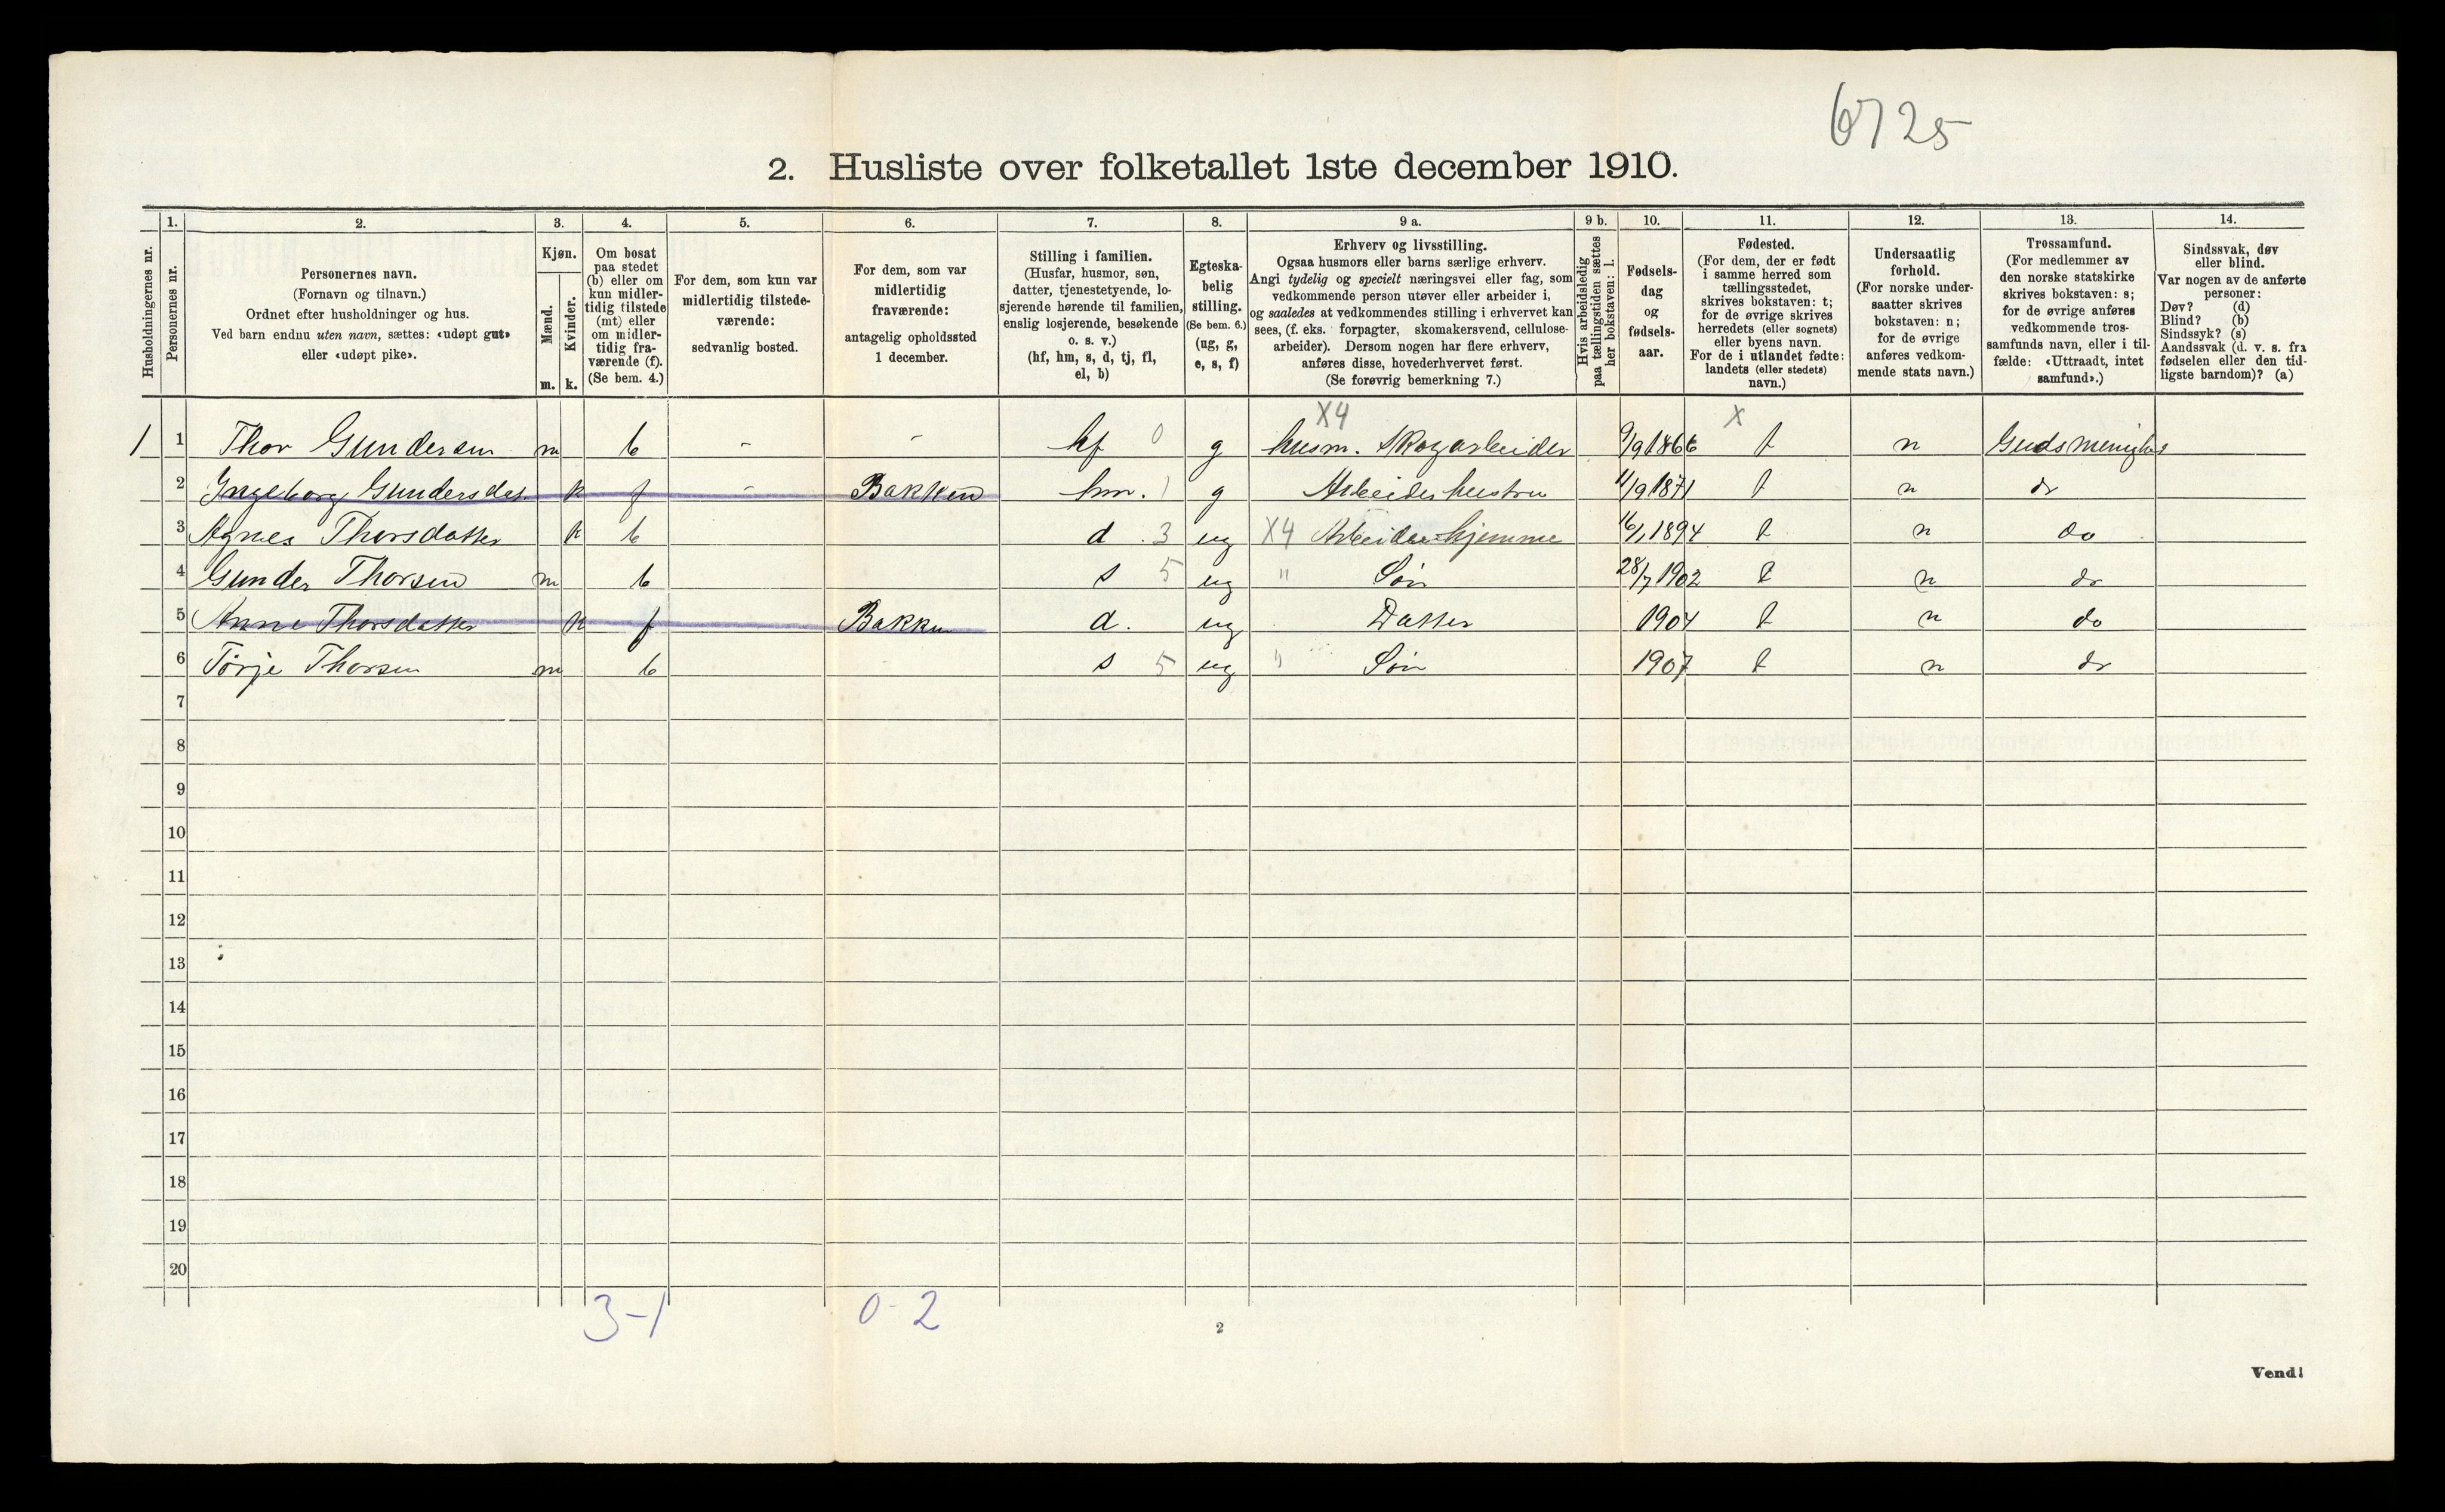 6725
2. Husliste over folketallet 1ste december 1910.
1. 2. 3. 4. 5. 6. 7. 8. 9 a. 9 b. 10. 11. 12. 13. 14.
Husholdningernes nr.
Personernes nr.
Personernes navn.
(Fornavn og tilnavn.)
Ordnet efter husholdninger og hus.
Ved barn endnu uten navn, sættes: «udøpt gut»
eller «udøpt pike».
Kjøn.
Mænd.
Kvinder.
m. k.
Om bosat
paa stedet
(b) eller om
kun midler-
tidig tilstede
(mt) eller
om midler-
tidig fra-
værende (f).
(Se bem. 4.)
For dem, som kun var
midlertidig tilstede-
værende:
sedvanlig bosted.
For dem, som var
midlertidig
fraværende:
antagelig opholdssted
1 december.
Stilling i familien.
(Husfar, husmor, søn,
datter, tjenestetyende, lo-
sjerende hørende til familien,
enslig losjerende, besøkende
o. s. v.)
(hf, hm, s, d, tj, fl,
el, b)
Egteska-
belig
stilling.
(Se bem. 6.)
(ug, g,
e, s, f)
Erhverv og livsstilling.
Ogsaa husmors eller barns særlige erhverv.
Angi tydelig og specielt næringsvei eller fag, som
vedkommende person utøver eller arbeider i,
og saaledes at vedkommendes stilling i erhvervet kan
sees, (f. eks. forpagter, skomakersvend, cellulose-
arbeider). Dersom nogen har flere erhverv,
anføres disse, hovederhvervet først.
(Se forøvrig bemerkning 7.)
Hvis arbeidsledig
paa tællingstiden sættes
her bokstaven: l.
Fødsels-
dag
og
fødsels-
aar.
Fødested.
(For dem, der er født
i samme herred som
tællingsstedet,
skrives bokstaven: t;
for de øvrige skrives
herredets (eller sognets)
eller byens navn.
For de i utlandet fødte:
landets (eller stedets)
navn.)
Undersaatlig
forhold.
(For norske under-
saatter skrives
bokstaven: n;
for de øvrige
anføres vedkom-
mende stats navn.)
Trossamfund.
(For medlemmer av
den norske statskirke
skrives bokstaven: s;
for de øvrige anføres
vedkommende tros-
samfunds navn, eller i til-
fælde: «Uttraadt, intet
samfund».)
Sindssvak, døv
eller blind.
Var nogen av de anførte
personer:
Døv? (d)
Blind? (b)
Sindssyk? (s)
Aandssvak (d. v. s. fra
fødselen eller den tid-
ligste barndom)? (a)
X4 X
1 1 Thor Gundersen m b - - hf 0 g husm. Skogarbeider 9/9 1866 t n Guds menighet
2 Ingeborg Gundersdat. k f - Bakken hm. 1 g Arbeiderhustru 11/9 1871 t n do
3 Agnes Thorsdatter k b d 3 ug X4 Arbeider hjemme 16/1 1894 t n do
4 Gunder Thorsen m b s 5 ug " Søn 28/7 1902 t n do
5 Anne Thorsdatter k f Bakken d. ug Datter 1904 t n do
6 Torje Thorsen m b s 5 ug " Søn 1907 t n do
7
8
9
10
11
12
13
14
15
16
17
18
19
20
3-1 0-2
2
Vend!